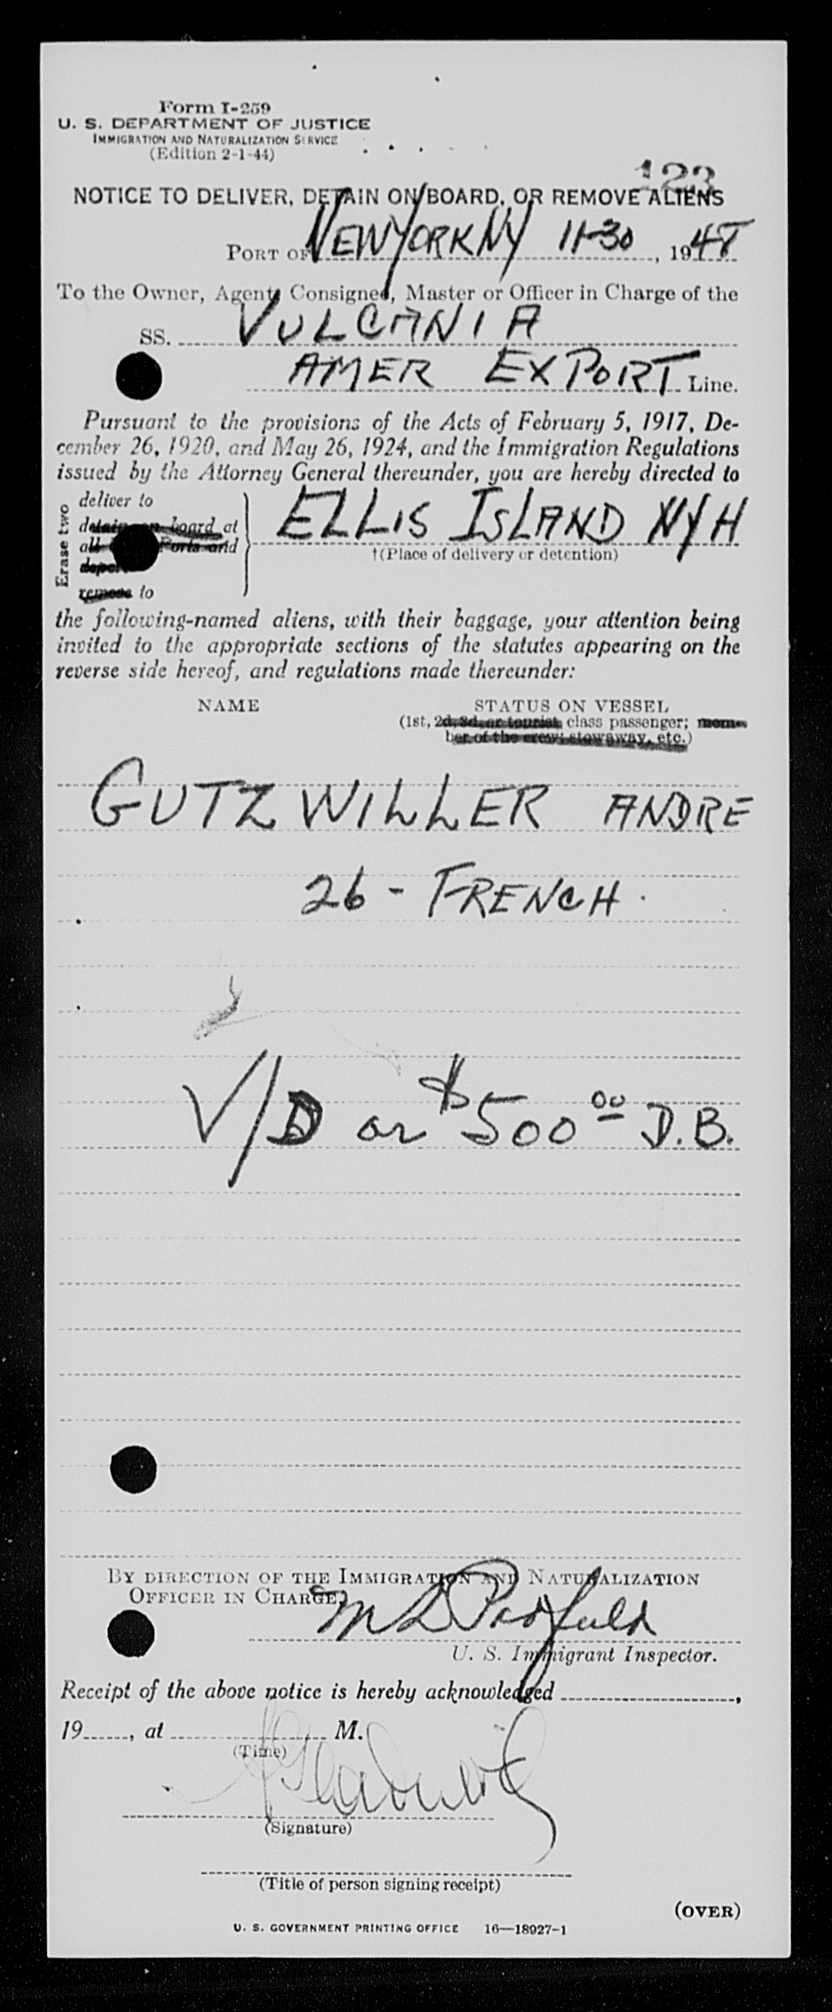 Form I-259
U. S. DEPARTMENT OF JUSTICE
IMMIGRATION AND NATURALIZATION SERVICE
(Edition 2-1-44)
123
NOTICE TO DELIVER, DETAIN ON BOARD, OR REMOVE ALIENS
PORT OF NEW YORK NY 11-30, 1948
To the Owner, Agent, Consignee, Master or Officer in Charge of the
SS. VULCANIA
AMER EXPORT Line.
Pursuant to the provisions of the Acts of February 5, 1917, De-
cember 26, 1920, and May 26, 1924, and the Immigration Regulations
issued by the Attorney General thereunder, you are hereby directed to
Erase two
deliver to
detain on board at
all Ports and
remove to
ELLIS ISLAND NYH
†(Place of delivery or detention)
the following-named aliens, with their baggage, your attention being
invited to the appropriate sections of the statutes appearing on the
reverse side hereof, and regulations made thereunder:
NAME STATUS ON VESSEL
(1st, 2d, 3d, or tourist class passenger; mem-
ber of the crew; stowaway, etc.)
GUTZWILLER ANDRE
26 - FRENCH.
V/D or $500 00 D.B.
BY DIRECTION OF THE IMMIGRATION AND NATURALIZATION
OFFICER IN CHARGE,
U. S. Immigrant Inspector.
Receipt of the above notice is hereby acknowledged ,
19 , at M.
(Time)
(Signature)
(Title of person signing receipt)
(OVER)
U. S. GOVERNMENT PRINTING OFFICE 16—18927-1